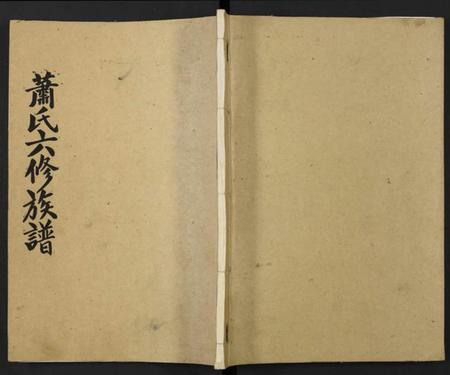 蕭氏六修族譜